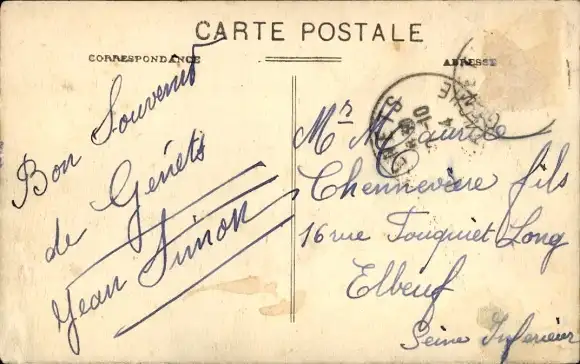 CARTE POSTALE
CORRESPONDANCE
ADRESSE
Bon Souvenir
de Genêts
Jean Simon
Mr Maurice
Chennevière fils
16 rue Fouquiet Long
Elbeuf
Seine Inferieur